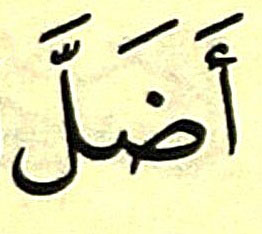 أَضَلَّ